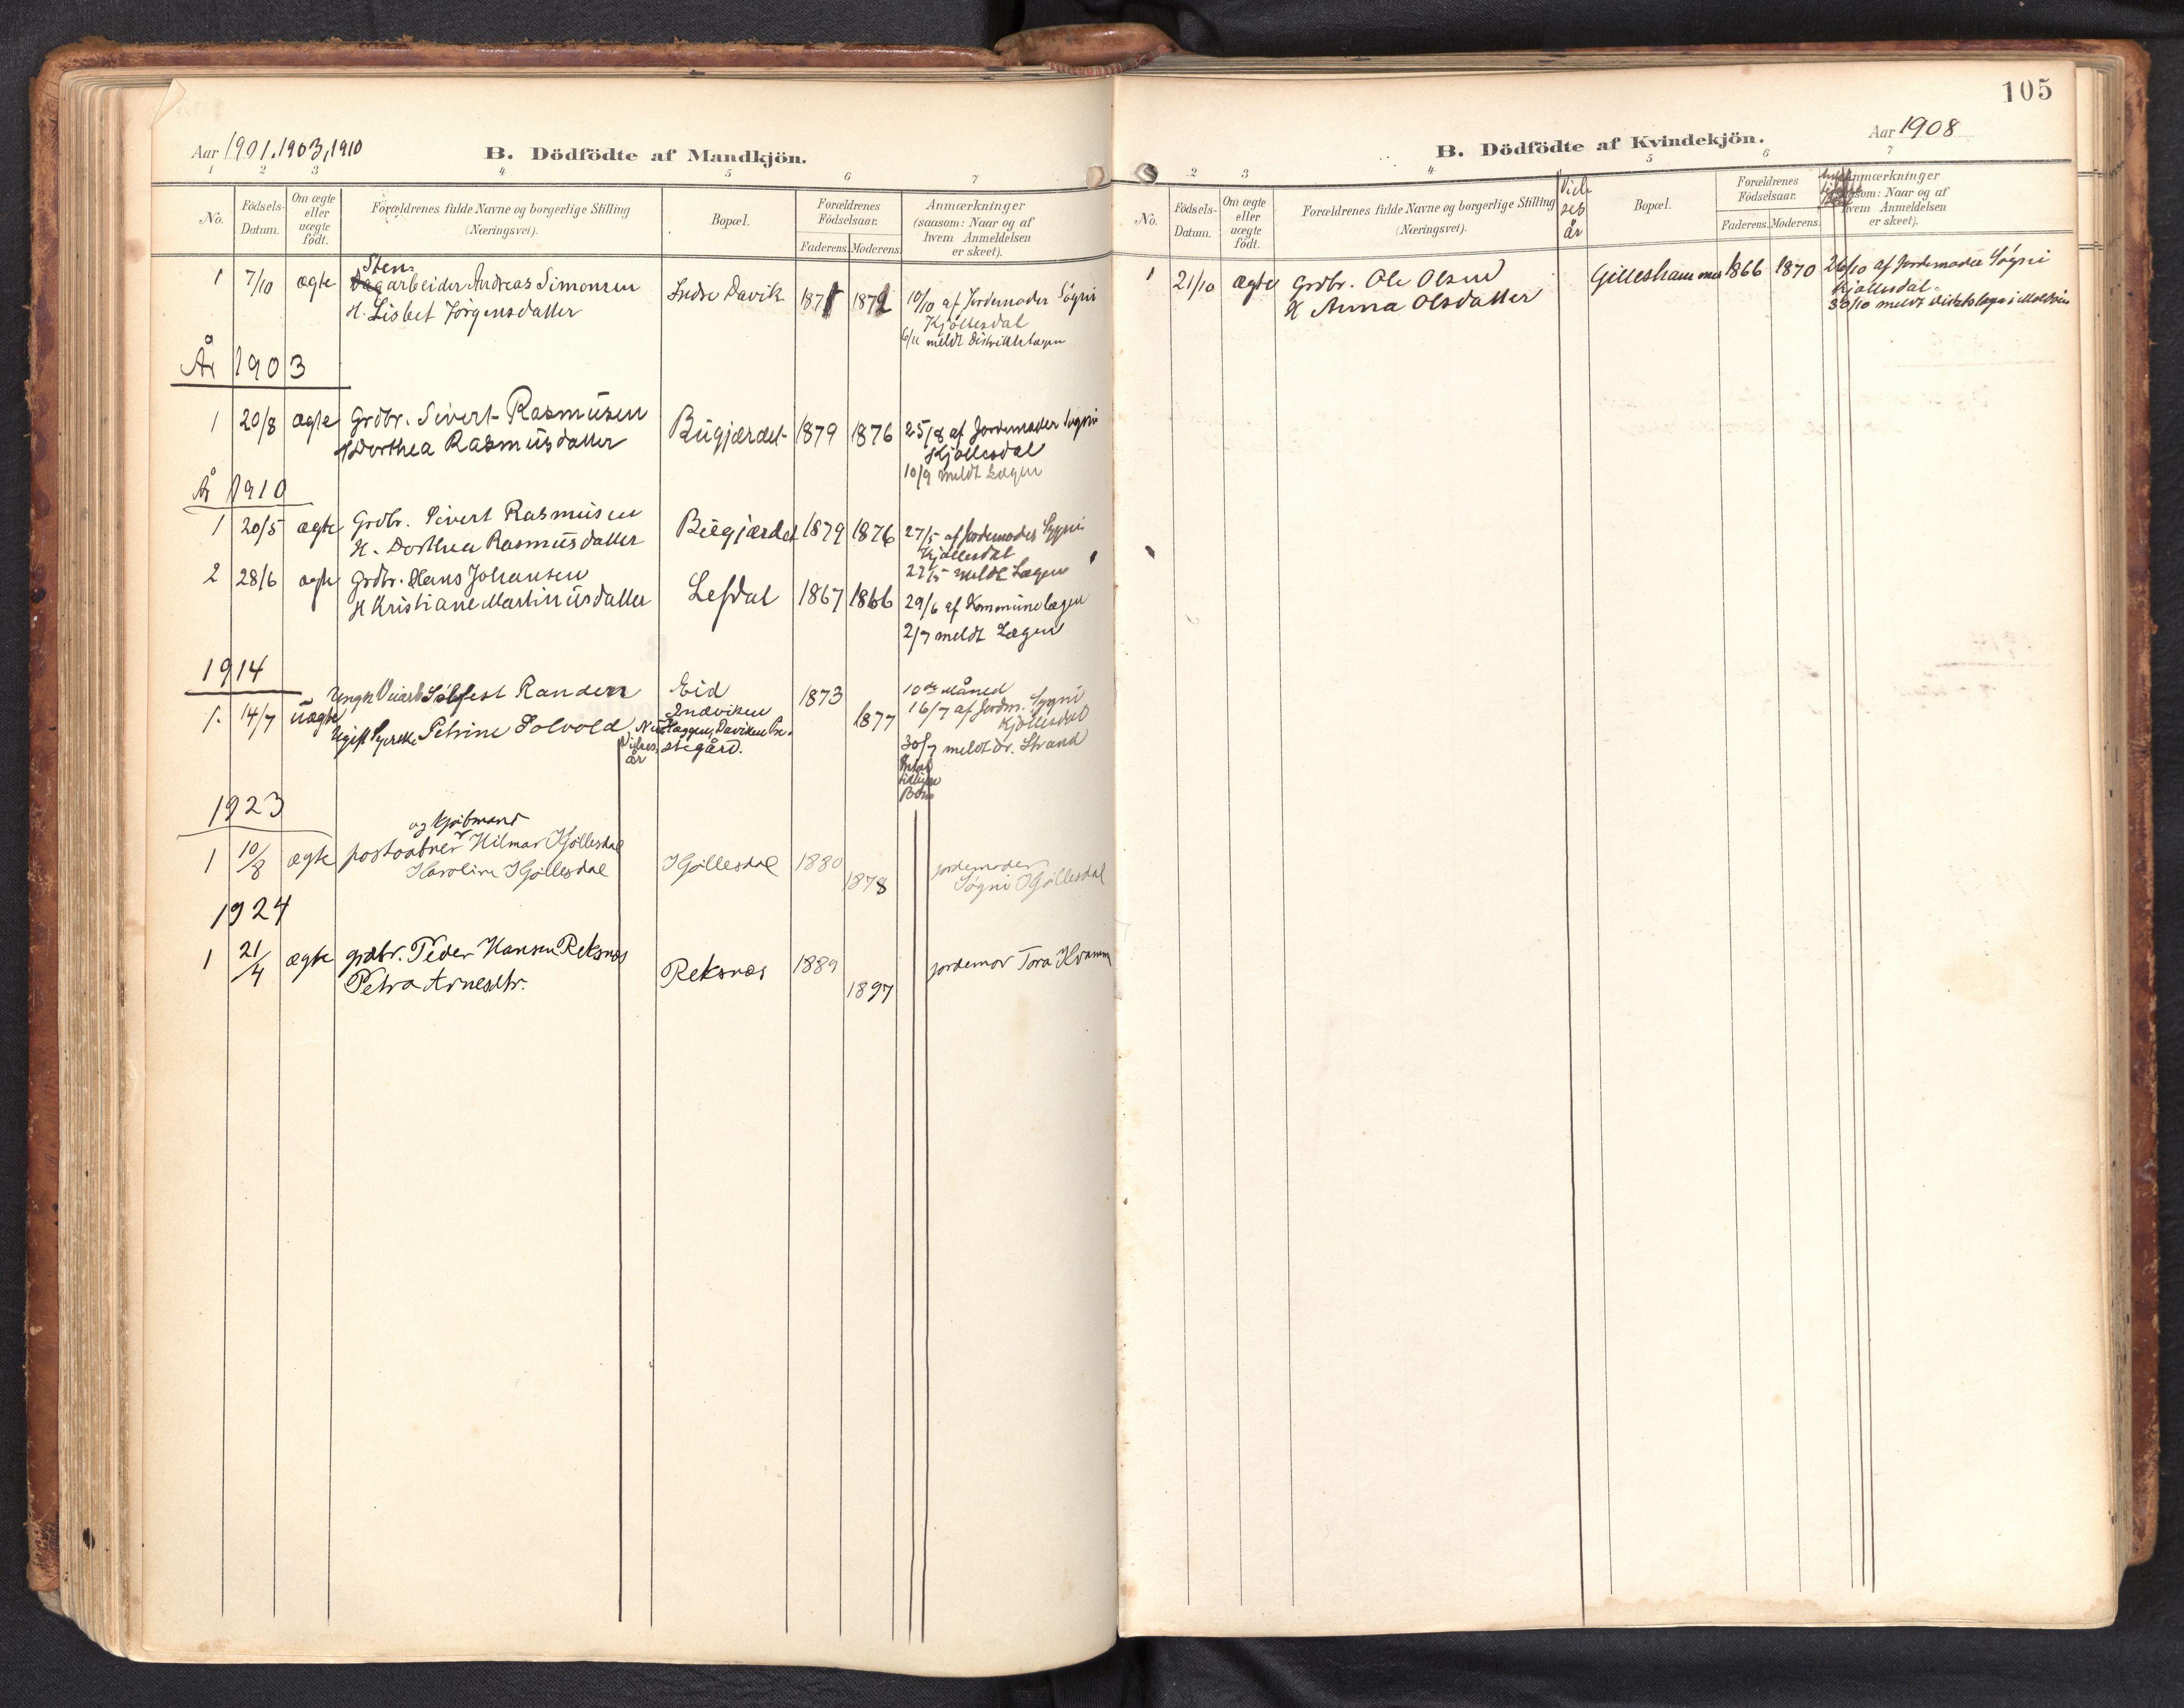 105
Aar 1901. 1903, 1910
B. Dödfödte af Mandkjön.
1 2 3 4 5 6 7
No.
Födsels-
Datum.
Om ægte
eller
uægte
födt.
Forældrenes fulde Navne og borgerlige Stilling
(Næringsvei).
Bopæl.
Forældrenes
Födselsaar.
Faderens. Moderens.
Anmærkninger
(saasom: Naar og af
hvem Anmeldelsen
er skeet).
1 7/10 ægte
Sten
arbeider Andreas Simonsen
H. Lisbet Jörgensdatter
Indre Davik 1871 1872
10/10 af Jordemoder Sögni
Kjöllesdal
6/11 meldt Distriktslægen
År 1903
1 20/8 ægte Grdbr. Sivert Rasmüsen
H Dorthea Rasmüsdatter
Bügjærdet 1879 1876
25/8 af Jordemoder Sögni
Kjöllesdal
10/9 meldt Lægen
År 1910
1 20/5 ægte Grdbr. Sivert Rasmüsen
H. Dorthea Rasmüsdatter
Bügjærdet 1879 1876
27/5 af Jordemoder Sygni
Kjöllesdal
27/5 meldt Lægen
2 28/6 ægte Grdbr. Hans Johansen
H Kristiane Martinüsdatter
Lefdal 1867 1866
29/6 af Kommünelægen
2/7 meldt Lægen
1914
1. 14/7 üægte
Ungk. Veiarb Sölfest Randen
Ugift Syerske Petrine Solvold
Eid
Indviken
Haggen, Daviken Pre-
stegård.
1873
1877
10de Måned
16/7 af Jordm. Sygni
Kjöllesdal
30/7 meldt Dr. Strand
Vielses
år
Antal
tidligere
Börn
1923
1 10/8 ægte
og kjöbmand
postaabner Hilmar Kjöllesdal
Karoline Kjöllesdal
Kjöllesdal 1880
1878
jordemoder
Sögni Kjöllesdal
1924
1 21/4 ægte grdbr. Peder Hansen Reksnes
Petra Arnesdtr.
Reksnes 1889
1897
jordemor Tora Kvamm
Aar 1908
B. Dödfödte af Kvindekjön.
2 3 4 5 6 7
No.
Födsels-
Datum.
Om ægte
eller
uægte
födt.
Forældrenes fulde Navne og borgerlige Stilling
(Næringsvei).
Viel
ses
år
Bopæl.
Forældrenes
Födselsaar.
Faderens. Moderens.
Anmærkninger
(saasom: Naar og af
hvem Anmeldelsen
er skeet).
1 21/10 ægte Grdbr. Ole Olsen
H Anna Olsdatter
Gilleshammer 1866 1870
26/10 af Jordemoder Sögni
Kjöllesdal.
30/10 meldt